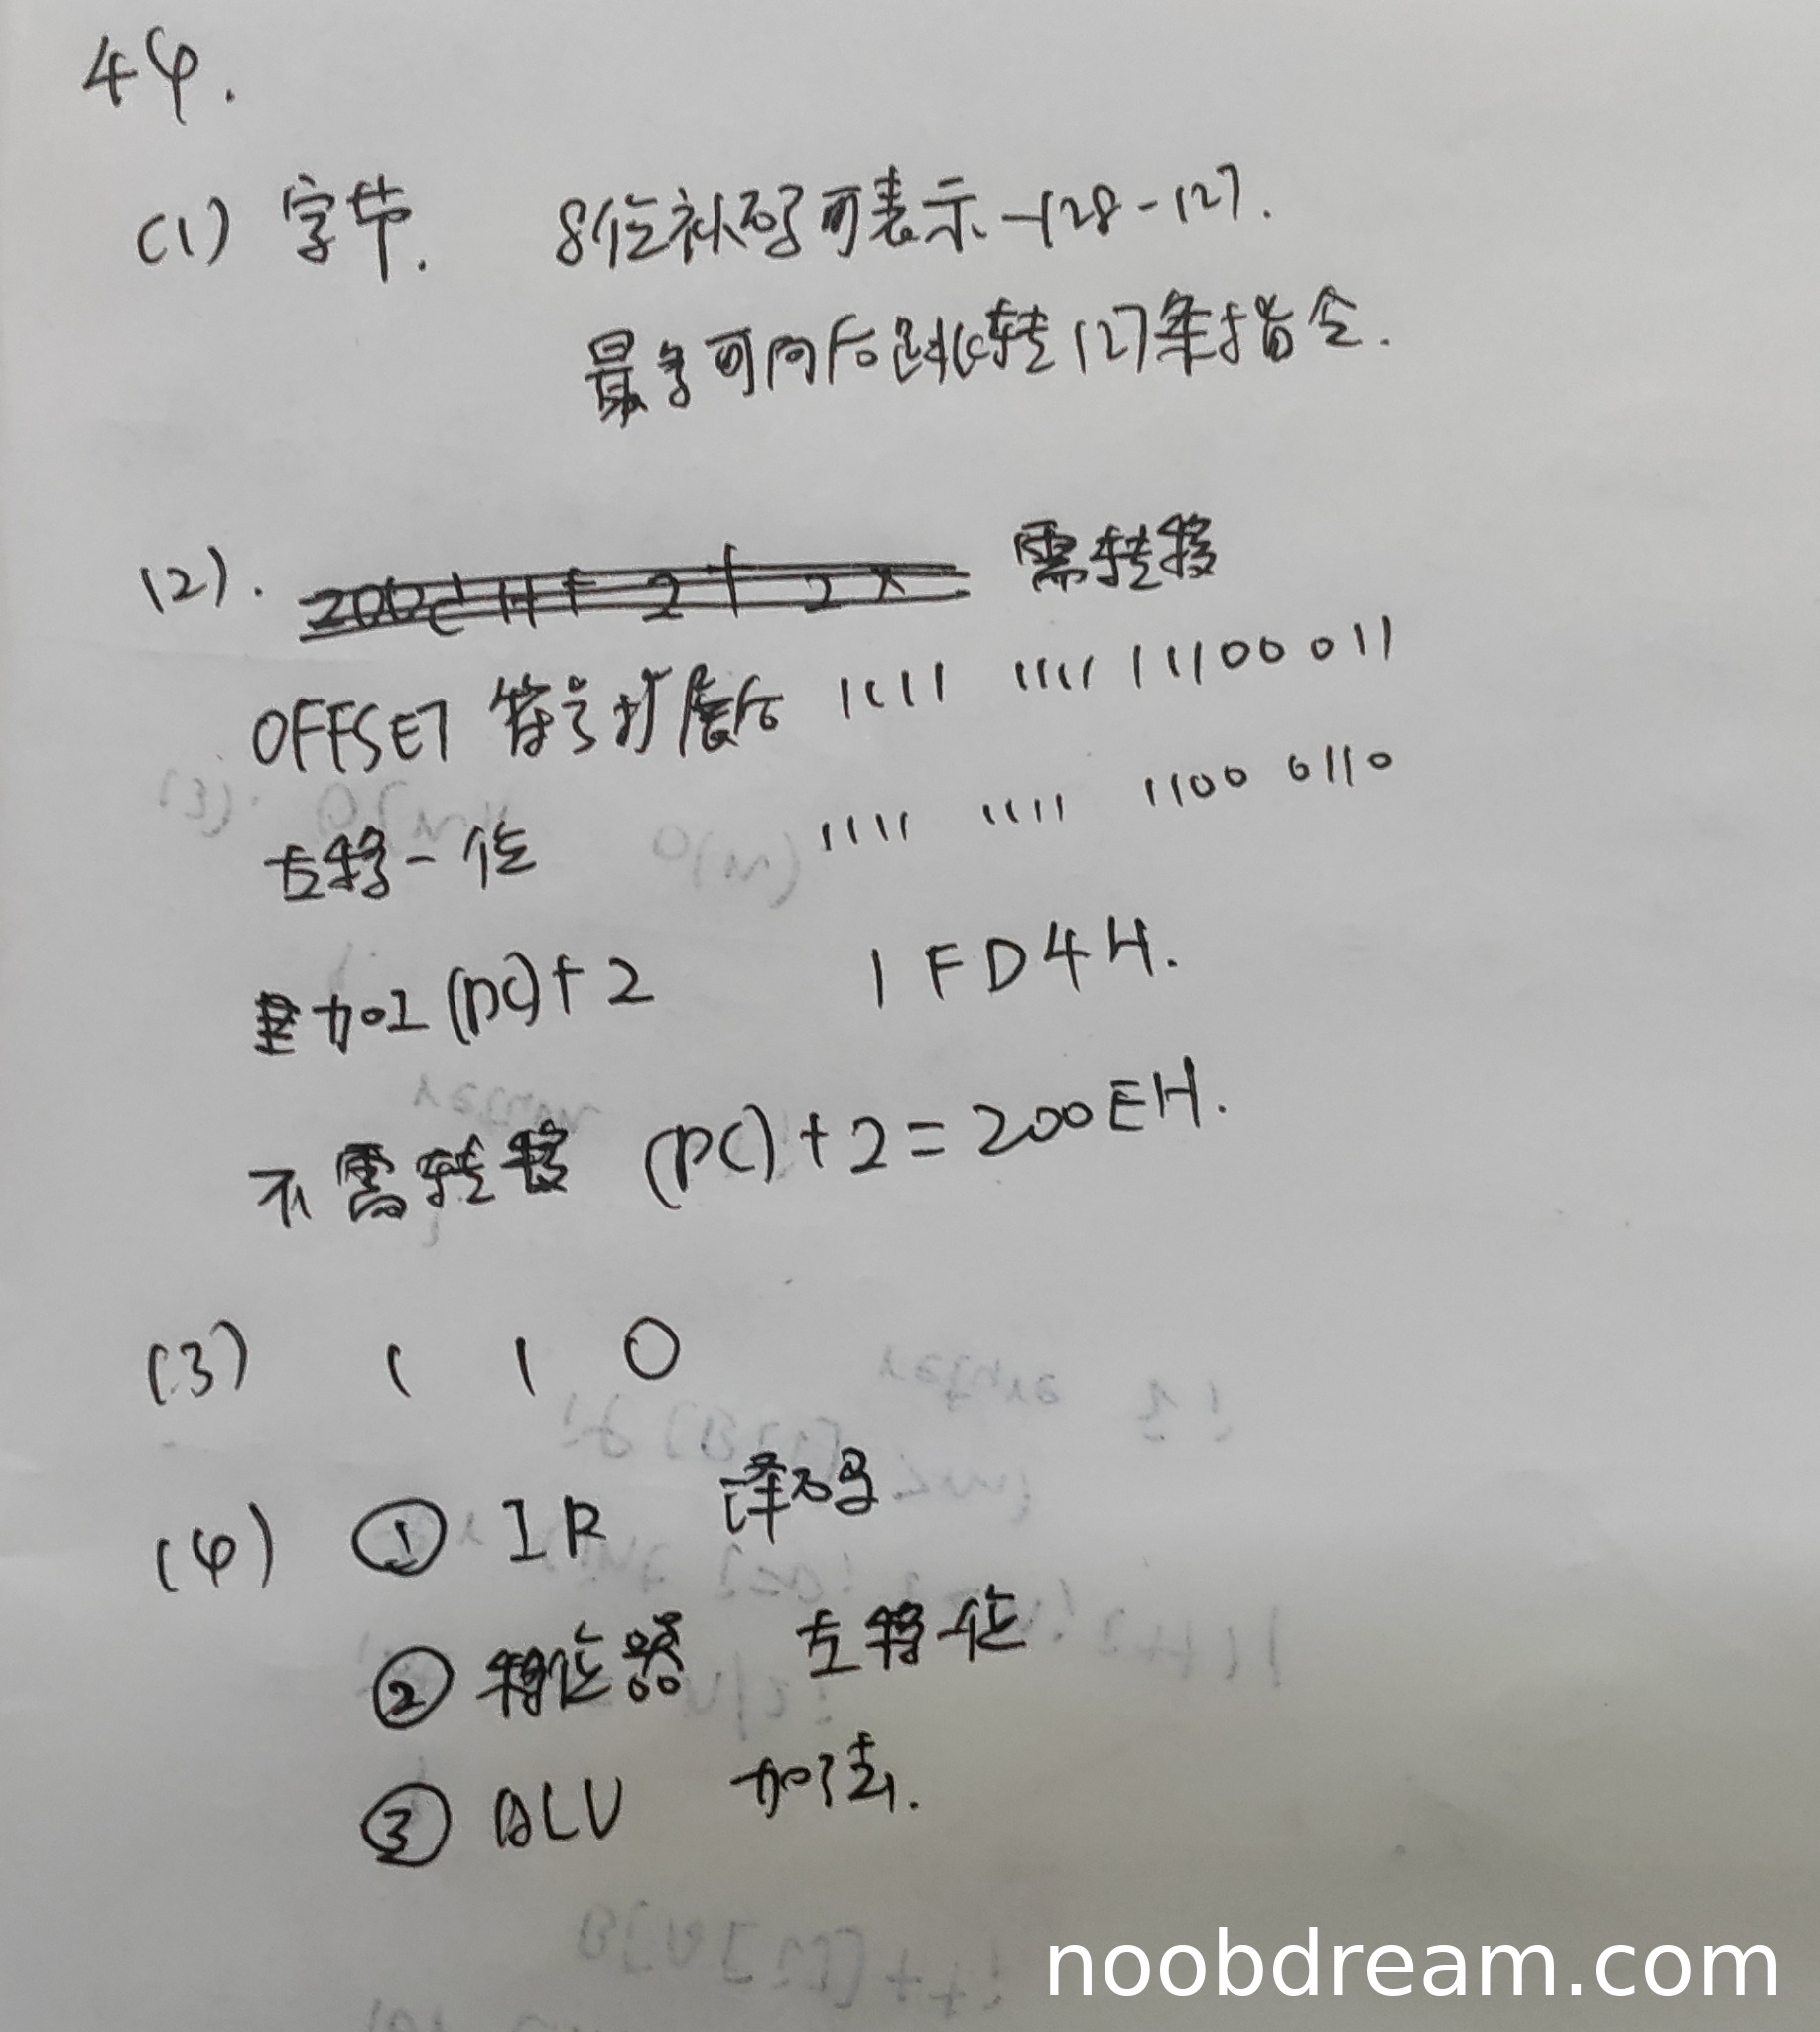 44.
(1) 字节. 8位补码可表示-128-127.
最多可向后跳转127条指令.
(2). 需转移
OFFSET 符号扩展后 1111 1111 11100011
左移一位 1111 1111 1100 0110
加上(PC)+2 1FD4H.
不需转移 (PC)+2=200EH.
(3) 1 1 0
(4) ① IR 译码
② 移位器 左移一位
③ ALU 加法.
noobdream.com